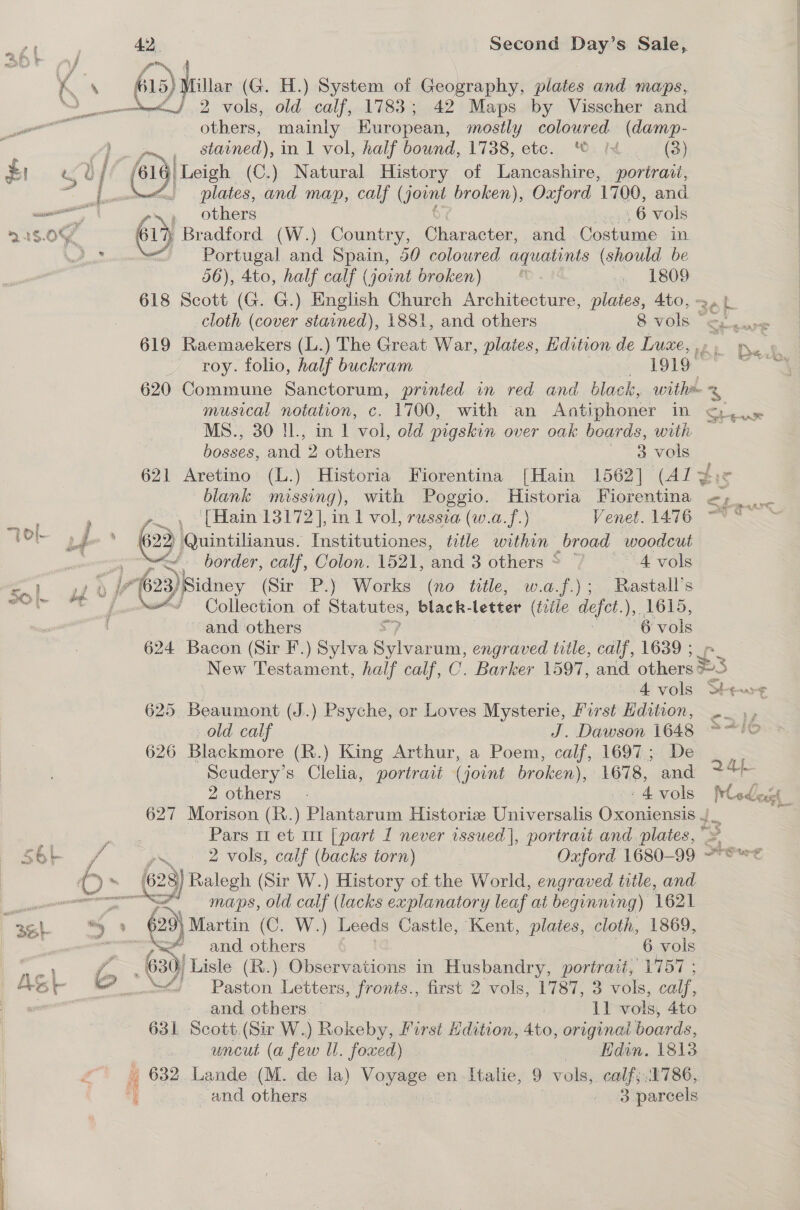 42 Second Day's Sale,
615) Millar (G. H.) System of Geography, plates and maps,
2 vols, old calf, 1783; 42 Maps by Visscher and
others, mainly European, mostly coloured (damp-
stained), in 1 vol, half bound, 1738, etc. (3)
616 Leigh (C.) Natural History of Lancashire, portrait,
plates, and map, calf (joint broken), Oxford 1700, and
others 6 vols
617 Bradford (W.) Country, Character, and Costume in
Portugal and Spain, 50 coloured aquatints (should be
56), 4to, half calf (joint broken) 1809
618 Scott (G. G.) English Church Architecture, plates, 4to,
cloth (cover stained), 1881, and others 8 vols
619 Raemaekers (L.) The Great War, plates, Edition de Luxe,
roy. folio, half buckram 1919
620 Commune Sanctorum, printed in red and black, with
musical notation, c. 1700, with an Antiphoner in
MS., 30 ll., in 1 vol, old pigskin over oak boards, with
bosses, and 2 others 3 vols
621 Aretino (L.) Historia Fiorentina [Hain 1562] (A1
blank missing), with Poggio. Historia Fiorentina
[Hain 13172], in 1 vol, russia (w.a.f.) Venet. 1476
622 Quintilianus. Institutiones, title within broad woodcut
border, calf, Colon. 1521, and 3 others 4 vols
623) Sidney (Sir P.) Works (no title, w.a.f.); Rastall's
Collection of Statutes, black-letter (title defct.), 1615,
and others 6 vols
624 Bacon (Sir F.) Sylva Sylvarum, engraved title, calf, 1639;
New Testament, half calf, C. Barker 1597, and others
4 vols
625 Beaumont (J.) Psyche, or Loves Mysterie, First Edition,
old calf J. Dawson 1648
626 Blackmore (R.) King Arthur, a Poem, calf, 1697; De
Scudery's Clelia, portrait (joint broken), 1678, and
2 others 4 vols
627 Morison (R.) Plantarum Historiæ Universalis Oxoniensis
Pars II et III [part I never issued], portrait and plates,
2 vols, calf (backs torn) Oxford 1680–99
628) Ralegh (Sir W.) History of the World, engraved title, and
maps, old calf (lacks explanatory leaf at beginning) 1621
629) Martin (C. W.) Leeds Castle, Kent, plates, cloth, 1869,
and others 6 vols
630) Lisle (R.) Observations in Husbandry, portrait, 1757;
Paston Letters, fronts., first 2 vols, 1787, 3 vols, calf,
and others 11 vols, 4to
631 Scott (Sir W.) Rokeby, First Edition, 4to, original boards,
uncut (a few ll. foxed) Edin. 1813
632 Lande (M. de la) Voyage en Italie, 9 vols, calf, 1786,
and others 3 parcels